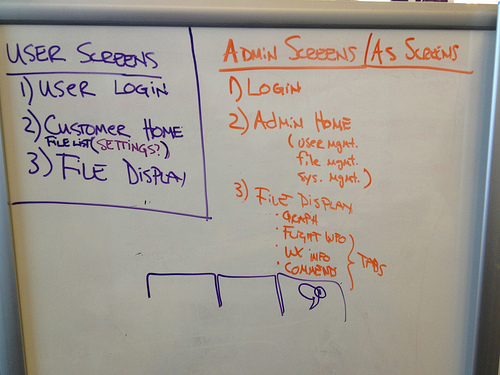 USER SCREENS
1) USER LOGIN
2) CUSTOMER HOME
FILE LIST (SETTINGS?)
3) FILE DISPLAY
ADMIN SCREENS/AS SCREENS
1) LOGIN
2) ADMIN HOME
(USER MGMT.
FILE MGMT.
SYS. MGMT.)
3) FILE DISPLAY
· GRAPH
· FLIGHT INFO
· WX INFO
· COMMENTS
TABS